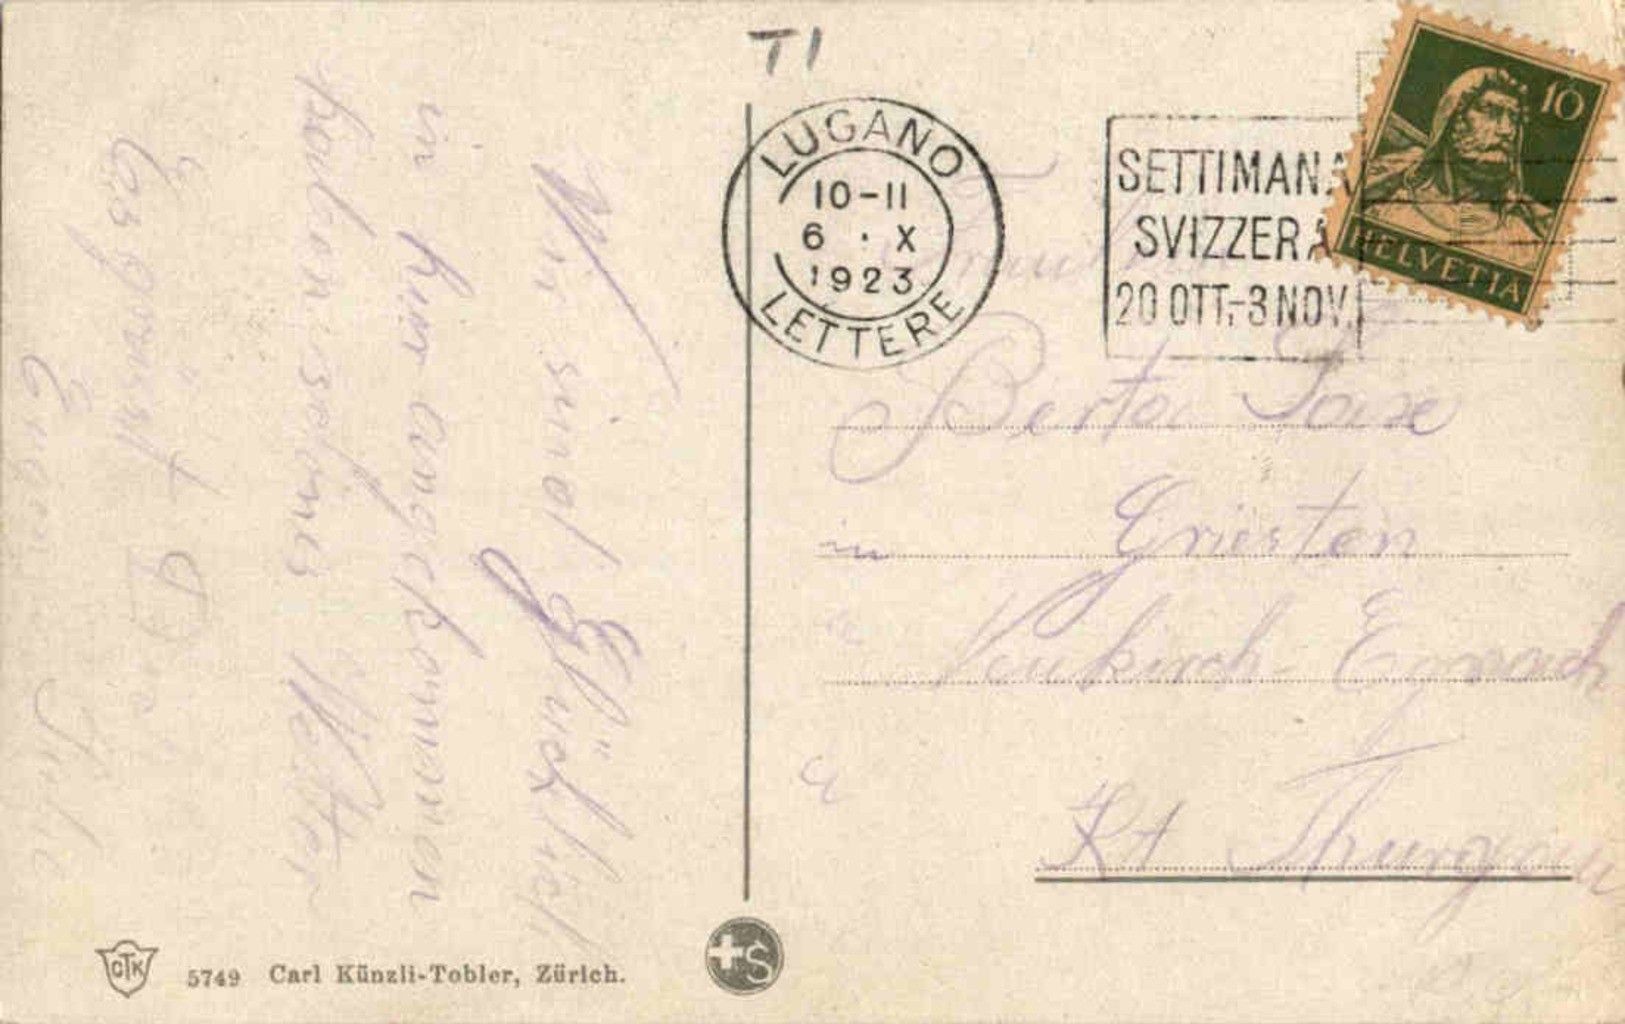 TI
LUGANO
10-11
6 · X
1923
LETTERE
SETTIMANA
SVIZZERA
20 OTT.-3 NOV.
10
HELVETIA
Fräulein
Berta
in Griesten
Neukirch-Egnach
Kt Thurgau
Wir sind Glücklich
in hier angekommen
haben schönes Wetter
Es grüsst
C T K
5749 Carl Künzli-Tobler, Zürich.
+S